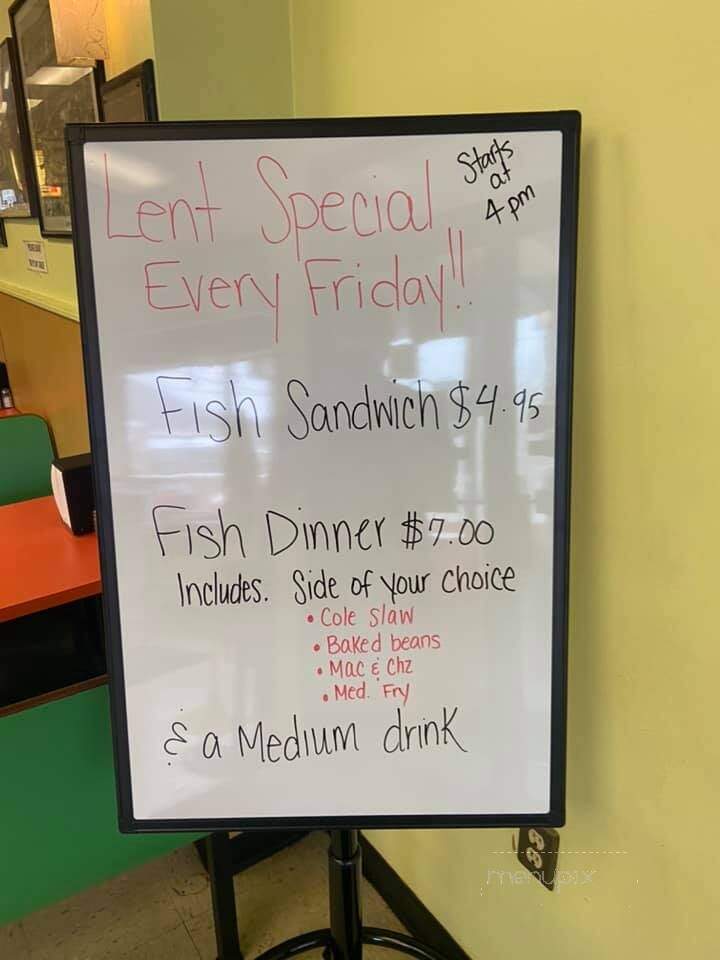 Lent Special
Starts
at
4 pm
Every Friday!!
Fish Sandwich $4.95
Fish Dinner $7.00
Includes. Side of your choice
• Cole slaw
• Baked beans
• Mac & Chz
• Med. Fry
& a Medium drink
menupix